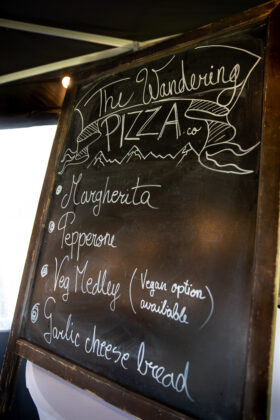 The Wandering
PIZZA.co
Margherita
Pepperone
Veg Medley (Vegan option
available)
Garlic cheese bread